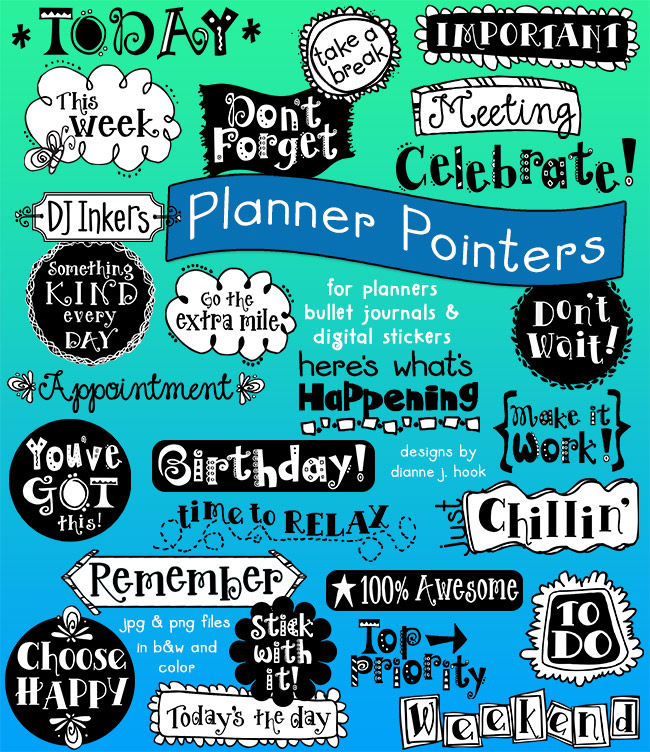 * TODAY *
take a
break
IMPORTANT
This
week
Don't
Forget
Meeting
Celebrate!
DJ Inkers
Planner Pointers
Something
KIND
every
DAY
Go the
extra mile
for planners
bullet journals &
digital stickers
Don't
Wait!
here's what's
Happening
Appointment
Make it
Work!
You've
GOT
this!
Birthday!
designs by
dianne j. hook
time to RELAX
just
Chillin'
Remember
100% Awesome
jpg & png files
in b&w and
color
Stick
with
it!
Top
Priority
TO
DO
Choose
HAPPY
Today's the day
Weekend